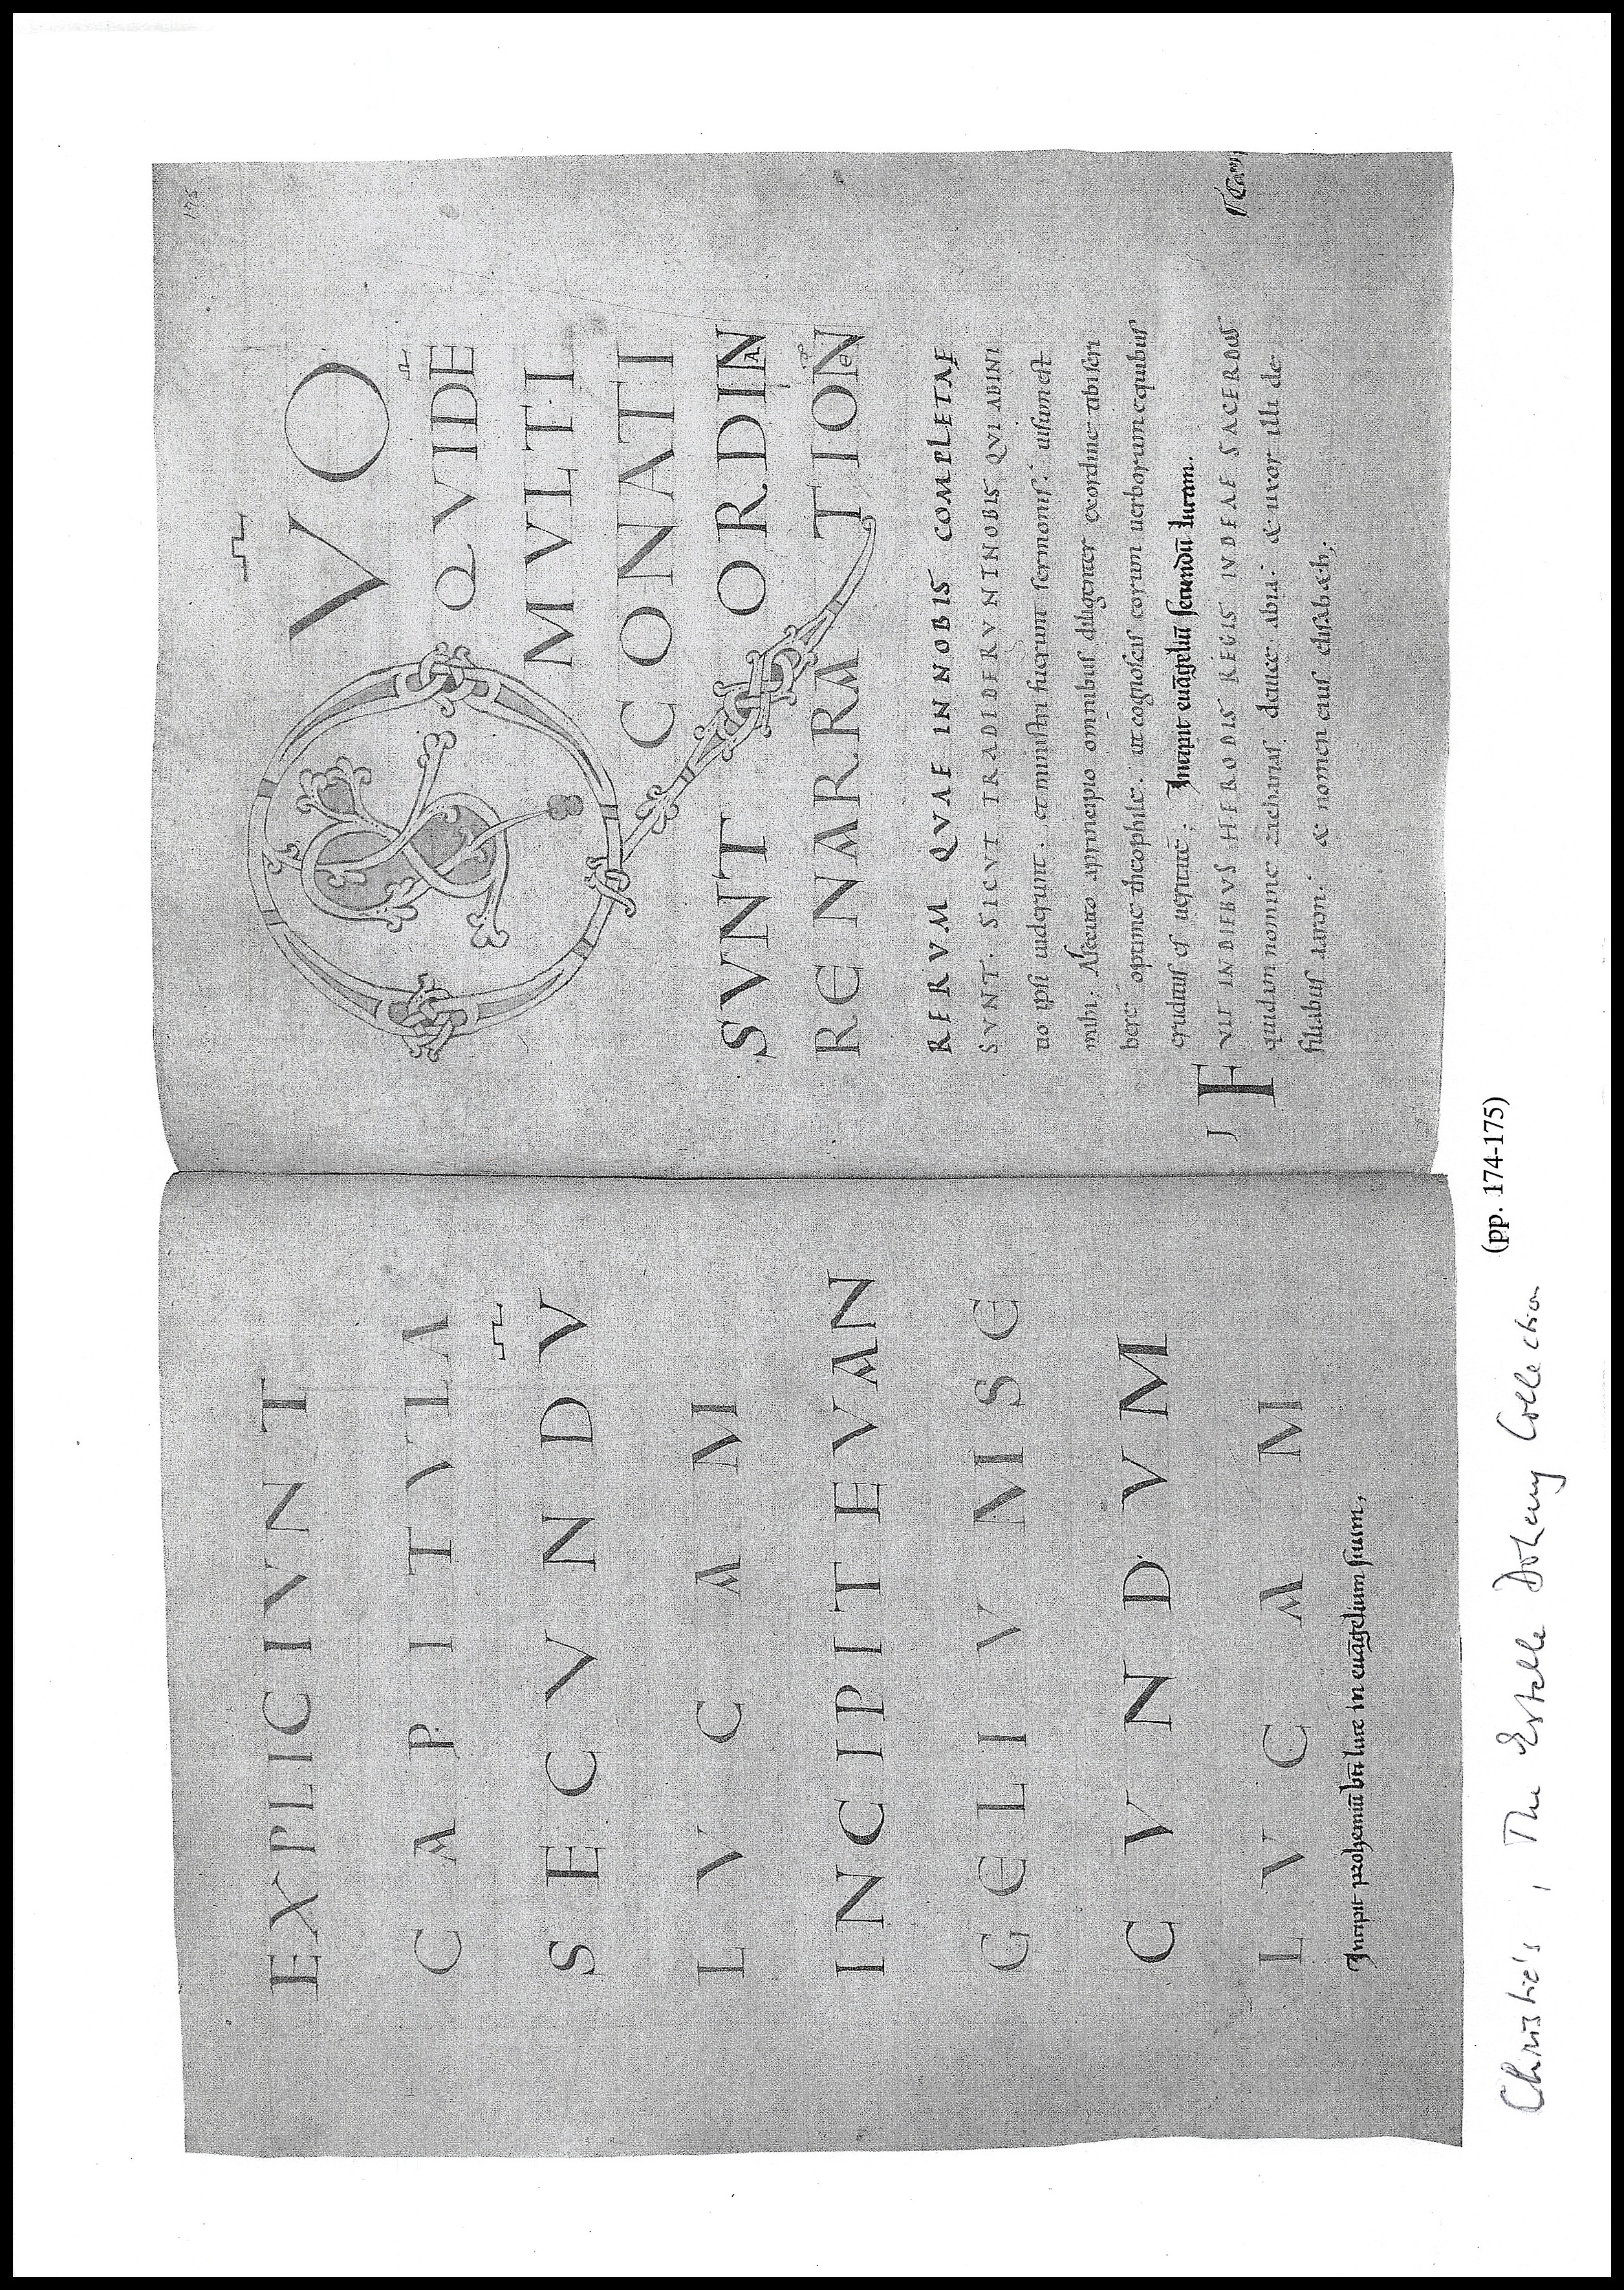 EXPLICIVNT
CAPITVLA
SECVNDV
LVCAM
INCIPIT EVAN
GELIVM SE
CVNDVM
LVCAM
Incipit prohemiū bti luce in euāgelium suum,
175
QVO
QVIDE
MVLTI
CONATI
SVNT ORDINA
RE NARRATIONE
RERVM QVAE IN NOBIS COMPLETAE
SVNT. SICVT TRADIDERVNINOBIS QVI ABINI
tio ipsi uiderunt. et ministri fuerunt sermonis. uisum est
mihi. Assecuto a principio omnibus diligenter ex ordine tibi scri
bere optime theophile. ut cognoscas eorum uerborum equibus
eruditus es ueritate. Incipit euāgeliū secundū lucam.
I FVIT IN DIEBVS HERODIS REGIS IVDEAE SACERDOS
quidam nomine zacharias deuice abia. & uxor illi de
filiabus aaron. & nomen eius elisabeth.
(pp. 174-175)
Christie's, The Estelle Doheny Collection